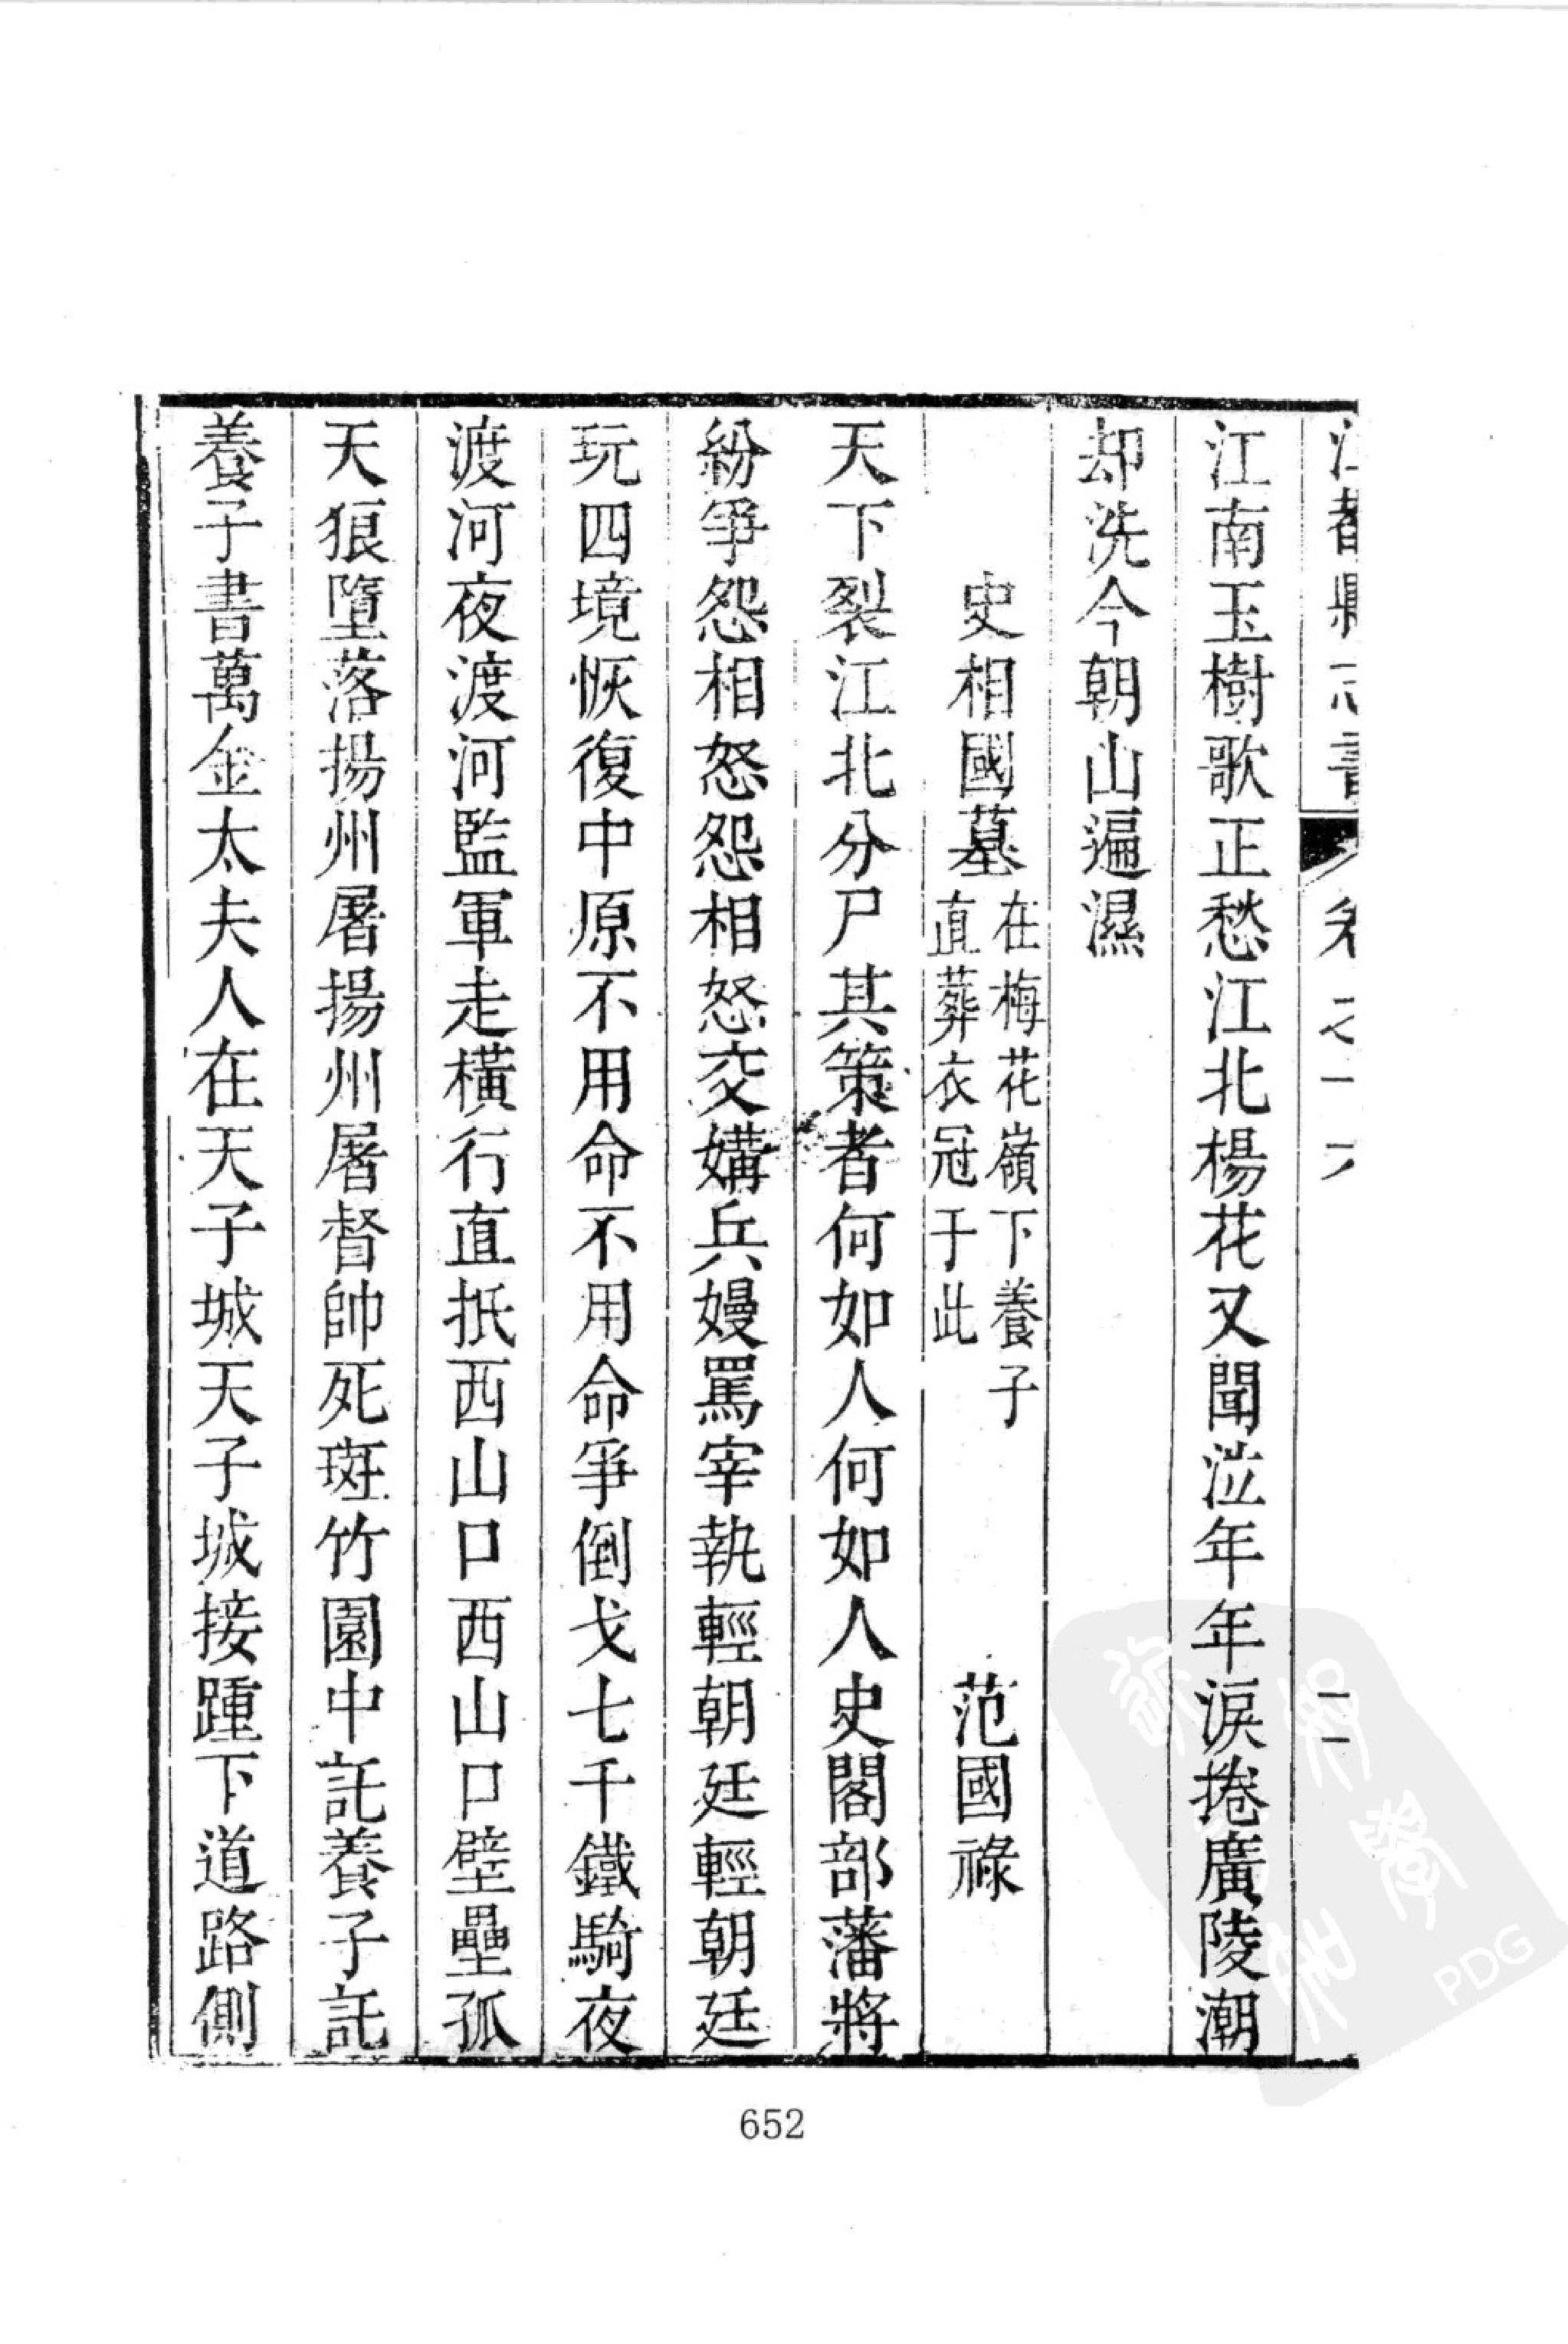 江都縣志書 卷之十六 二
江南玉樹歌正愁江北楊花又聞泣年年淚捲廣陵潮
却洗今朝山遍濕
史相國墓 在梅花嶺下養子直葬衣冠于此 范國祿
天下裂江北分尸其策者何如人何如人史閣部藩將
紛爭怨相怒怨相怒交媾兵嫚罵宰執輕朝廷輕朝廷
玩四境恢復中原不用命不用命爭倒戈七千鐵騎夜
渡河夜渡河監軍走橫行直抵西山口西山口壁壘孤
天狼墮落揚州屠揚州屠督帥死斑竹園中託養子託
養子書萬金太夫人在天子城天子城接踵下道路側
652
PDG